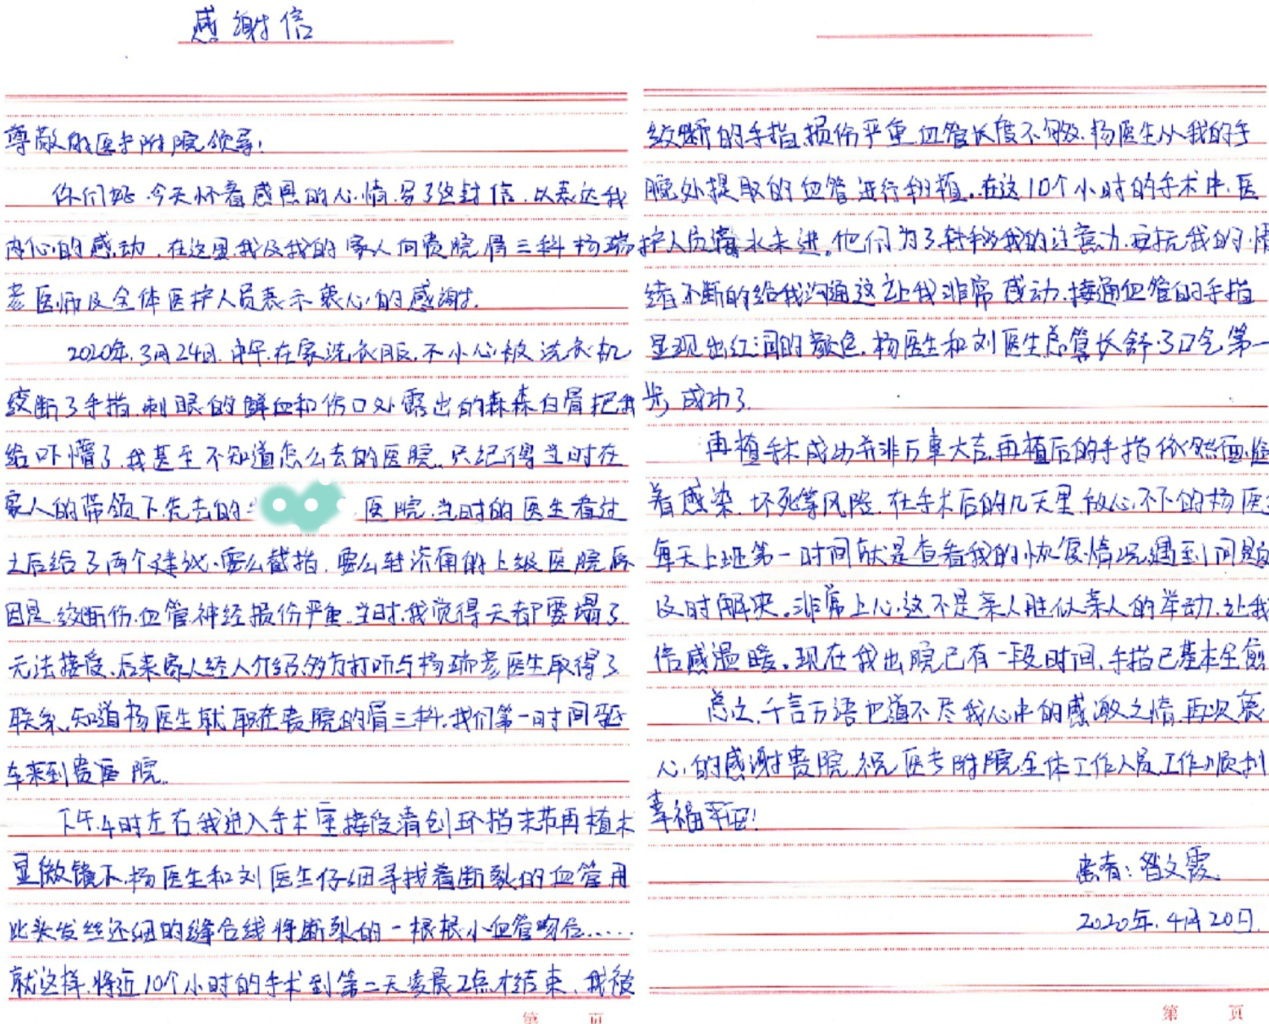 感谢信
尊敬的医专附院领导：
你们好.今天怀着感恩的心情.写了这封信.以表达我
内心的感动.在这里.我及我的家人向贵院骨三科杨瑞
老医师及全体医护人员表示衷心的感谢.
2020年.3月24日.中午.在家洗衣服.不小心被洗衣机
绞断了手指.刺眼的鲜血和伤口处露出的森森白骨把我
给吓懵了.我甚至不知道怎么去的医院.只记得当时在
家人的带领下先去的 医院.当时的医生看过
之后给了两个建议.要么截指.要么转济南的上级医院.原
因是.绞断伤.血管神经损伤严重.当时.我觉得天都要塌了.
无法接受.后来家人经人介绍.多方打听与杨瑞老医生取得了
联系.知道杨医生就职在贵院的骨三科.我们第一时间驱
车来到贵医院.
下午.4时左右我进入手术室接受清创环指末节再植术
显微镜下.杨医生和刘医生仔细寻找着断裂的血管用
比头发丝还细的缝合线将断裂的一根根小血管吻合......
就这样.将近10个小时的手术到第二天凌晨2点才结束.我被
绞断的手指.损伤严重.血管长度不够.杨医生从我的手
腕处提取的血管进行移植.在这10个小时的手术中.医
护人员滴水未进.他们为了转移我的注意力.安抚我的情
绪.不断的给我沟通这让我非常感动.接通血管的手指
显现出红润的颜色.杨医生和刘医生总算长舒了口气第一
步成功了.
再植手术成功并非万事大吉.再植后的手指依然面临
着感染.坏死等风险.在手术后的几天里.放心不下的杨医生
每天上班第一时间就是查看我的恢复情况.遇到问题
及时解决.非常上心.这不是亲人胜似亲人的举动.让我
倍感温暖.现在我出院已有一段时间.手指已基本全愈
总之.千言万语也道不尽我心中的感激之情.再次衷
心的感谢贵院.祝医专附院全体工作人员.工作顺利
幸福平安！
患者：昝文霞
2020年.4月20日.
第 页
第 页